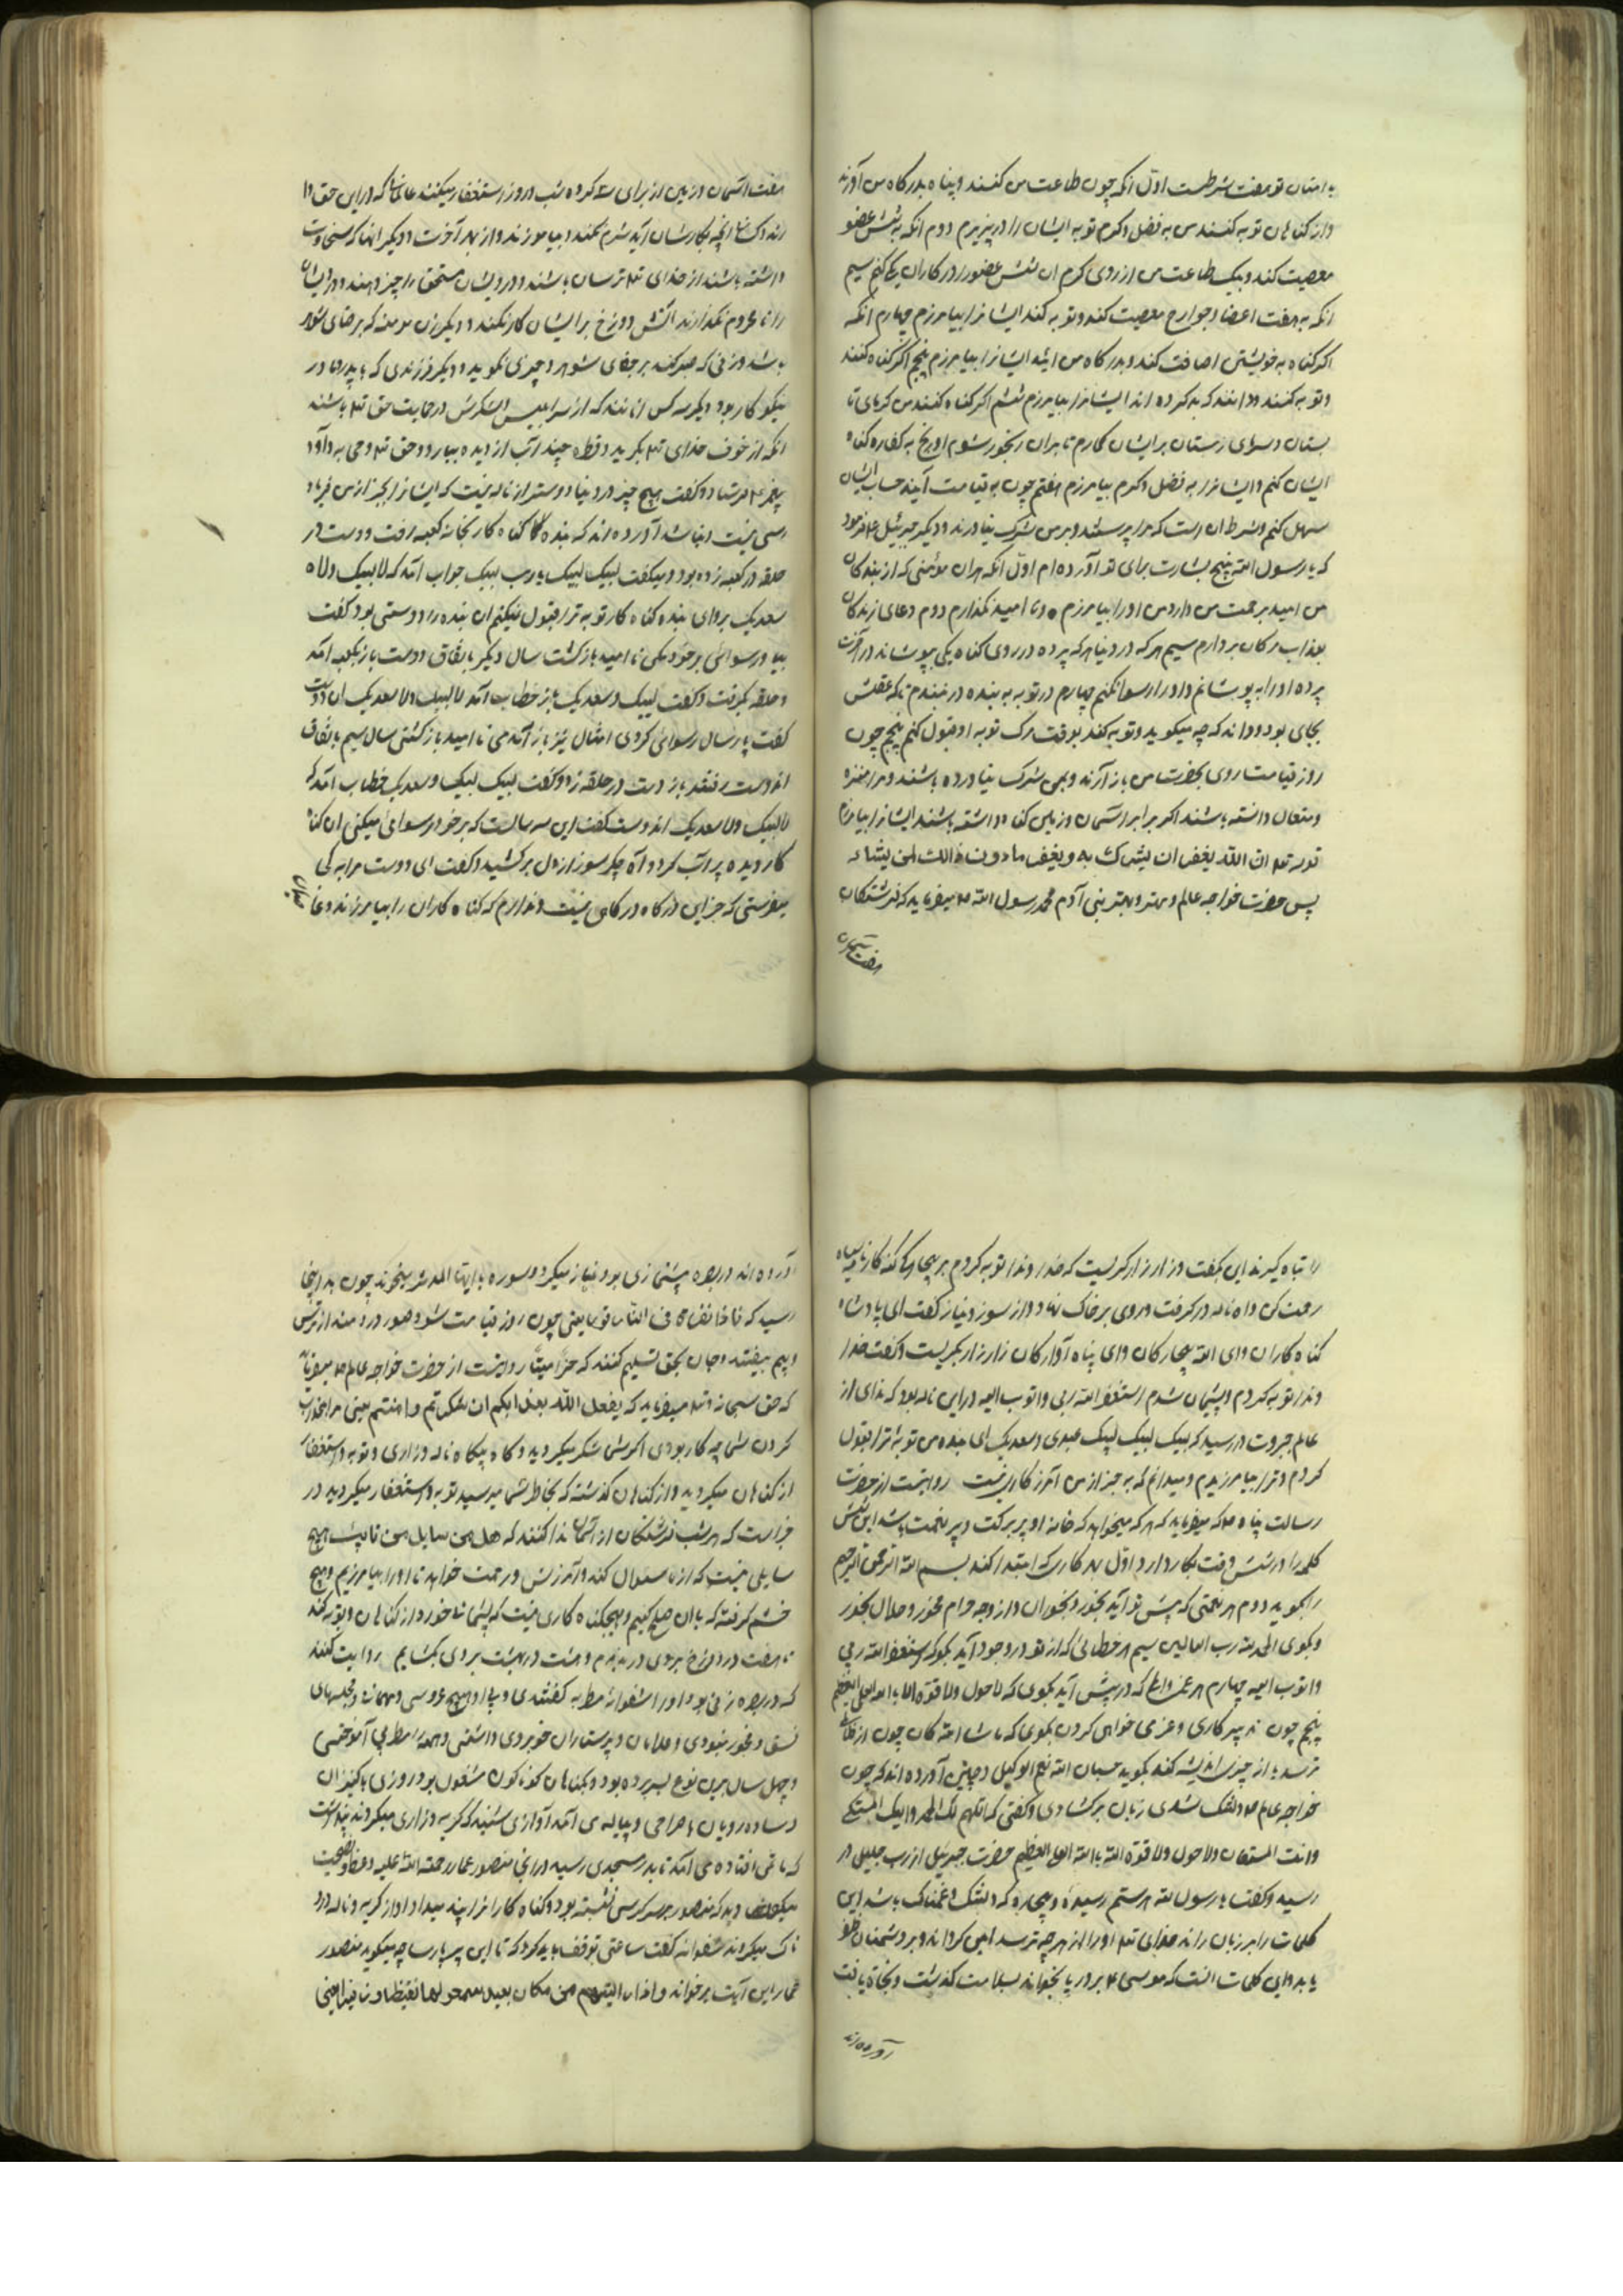 با امتان تو هفت شرطست اول آنکه چون طاعت من کنند و پناه بدرکاه من آورند
و از کناهان توبه کنند من به فضل و کرم توبه ایشان را در پزیرم دوم آنکه به شش عضو
معصیت کند و بیک طاعت من از روی کرم ان شش عضو را در کار ان یکی کنم سیم
انکه به هفت اعضا و جوارح معصیت کند و توبه کند ایشانرا بیامرزم چهارم انکه
اکر کناه به خویشتن اضافت کند و بدرکاه من ایند ایشانرا بیامرزم پنجم اکر کناه کنند
و توبه کنند و دانند که بد کرده اند ایشانرا بیامرزم ششم اکر کناه کنند من کرمای تا
بستان و سرمای زمستان بر ایشان کمارم تا بدان رنجور شوم و رنج به کفاره کناه
ایشان کنم و ایشانرا به فضل و کرم بیامرزم هفتم چون به قیامت آیند حساب ایشان
سهل کنم و شرط ان است که مرا پرستند و بر من شرک نیاورند و دیکر جبرئیل ع فرمود
که یا رسول الله پنج بشارت برای تو آورده ام اول انکه هران مؤمنی که از بندکان
من امید برحمت من دارد من او را بیامرزم و نا امید نکذارم دوم دعای زندکان
بعذاب مرکان بردارم سیم هر که در دنیا هر که پرده در روی کناه یکی بپوشاند در آخرت
پرده او را به پوشانم و او را رسوا نکنم چهارم در توبه به بنده در نبندم تا که عقلش
بجای بود و داند که چه میکوید و توبه کند بوقت مرک توبه او قبول کنم پنجم چون
روز قیامت روی بحضرت من باز آرند و بمن شرک نیاورده باشند و مرا منزه
و متعال دانسته باشند اکر برابر آسمان و زمین کناه داشته باشند ایشانرا بیامرزم
قوله تع ان الله یغفر ان یشرک به و یغفر ما دون ذالک لمن یشاء
پس حضرت خواجه عالم و مهتر و بهتر بنی آدم محمد رسول الله ص میفرماید که فرشتکان
هفت آسمان
هفت آسمان و زمین از برای سه کروه شب و روز استغفار میکنند
انچه بکارشان آید شرم نکنند و بیاموزند و از بهر آخرت و دیکر انها که سخاوت
داشته باشند از خدای تع ترسان باشند و درویشان مستحق را چیز دهند و درویشان
را نا محروم نکذارند آتش دوزخ بر ایشان کار نکند و دیکر زن مومنه که برضای شوهر
باشد و زنی که صبر کند بر جفای شوهر و چیزی نکوید و دیکر فرزندی که با پدر و مادر
نیکو کار بود دیکر سه کس انانند که از شر ابلیس و لشکرش در حمایت حق تع باشند
انکه از خوف خدای تع بکرید و قطره چند آب از دیده ببارد و حق تع وحی به داود
پیغمبر ع فرستاد و کفت هیچ چیز در دنیا دوستر از ناله نیست که ایشانرا بجز از من فریاد
رسی نیست و نباشد آورده اند که بنده کناه کار بخانه کعبه رفت و دست در
حلقه در کعبه زده بود و میکفت لبیک لبیک یا رب لبیک جواب آمد که لا لبیک و لا
سعدیک برو ای بنده کناه کار توبه ترا قبول نمیکنم ان بنده را دوستی بود کفت
بیا و رسوائی بر خود مکن نا امید باز کشت سال دیکر باتفاق دوست باز بکعبه آمد
و حلقه بکرفت و کفت لبیک و سعدیک باز خطاب آمد لا لبیک و لا سعدیک ان دوست
کفت پار سال رسوائی کردی امثال نیز باز آمدی نا امید باز کشتی سال سیم باتفاق
اندوست رفتند باز دست در حلقه زد و کفت لبیک لبیک و سعدیک خطاب آمد که
لا لبیک و لا سعدیک اندوست کفت این سه سالست که بر خود رسوائی میکنی ان کناه
کار دیده پر آب کرد و آه جکر سوز از دل بر کشید و کفت ای دوست مرا به کی
میفرستی که جز این درکاه درکاهی نیست و ندارم که کناه کاران را بیامرزاند
را تباه کیرند این بکفت و زار زار کریست که خداوندا توبه کردم بر بیچارکی کنه کار نامه سیاه
رحمت کن و آه ناله در کرفت و روی بر خاک نهاد و از سوز و نیاز کفت ای پادشاه
کناه کاران و ای اله بیچارکان و ای پناه آوارکان زار زار بکریست و کفت خدا
وندا توبه کردم و پشیمان شدم استغفر الله ربی و اتوب الیه در این ناله بود که ندای از
عالم جبروت در رسید که لبیک لبیک لبیک عبدی و سعدیک ای بنده من توبه ترا قبول
کردم و ترا بیامرزیدم و میدانم که به جز از من آمرزکاری نیست روایتست از حضرت
رسالت پناه ص که میفرماید که هر که میخواهد که خانه او پر برکت و پر نعمت باشد این شش
کلمه را در شش وقت بکار دارد اول بهر کاری که ابتدا کند بسم الله الرحمن الرحیم
را بکوید دوم هر نعمتی که پیش تو آید بخور و بخوران و از وجه حرام مخور و حلال بخور
و بکوی الحمد لله رب العالمین سیم هر خطائی که از تو در وجود آید بکو که استغفر الله ربی
و اتوب الیه چهارم هر غم و المی که در پیش آید بکوی که لا حول و لا قوة الا بالله العلی العظیم
پنجم چون تدبیر کاری و عزمی خواهی کردن بکوی که ما شاء الله کان چون از
ترسد یا از چیزی اندیشه کند بکوید حسبنا الله نعم الوکیل و چنین آورده اند که چون
خواجه عالم ص دلتنک شدی زبان بر کشادی و کفتی که اللهم لک الحمد و الیک المشتکی
و انت المستعان و لا حول و لا قوة الا بالله العلی العظیم حضرت جبرئیل از رب جلیل در
رسید و کفت یا رسول الله هر ستم رسیده و بیچاره که دلتنک و غمناک باشد این
کلمات را بر زبان راند خدای تع او را از هر چه ترسد ایمن کرداند و بر دشمنان ظفر
یابد و این کلمات انست که موسی ع بر دریا بخواند بسلامت کذشت و نجاة یافت
آورده اند
آورده اند در بصره پیشنمازی بود نماز میکرد و سوره یا ایها المدثر میخواند چون بدینجا
رسید که فاذا نقر فی الناقور یعنی چون روز قیامت شود و صور در دمند از ترس
و بیم بیفتد و جان بحق تسلیم کنند که خر میتا روایتست از حضرت خواجه عالم ص میفرماید
که حق سبحانه و تع میفرماید که یفعل الله بعذابکم ان شکرتم و امنتم یعنی مرا بعذاب
کردن شما چه کار بودی اکر شما شکر میکردید و کاه بیکاه ناله و زاری و توبه و استغفار
از کناهان میکردید و از کناهان کذشته که بخاطر شما میرسید توبه و استغفار میکردید در
خبر است که هر شب فرشتکان از آسمان ندا کنند که هل من سایل من تایب هیچ
سایلی نیست که از ما سئوال کند و آمرزش و رحمت خواهد تا او را بیامرزیم و هیچ
خشم کرفته که با ان صلح کنیم و هیچ کناه کاری نیست که پشیمانی خورد از کناهان و توبه کند
تا هفت در دوزخ بروی در بندم و هشت در بهشت بروی بکشایم روایت کنند
که در بصره زنی بود او را شعوانه مطربه کفتندی و بی او هیچ عروسی و مهمانی و مجلسهای
فسق و فجور نبودی و غلامان و پرستاران خوبروی داشتی و همه را مطربی آموختی
و چهل سال برین نوع بسر برده بود و بکناهان کوناکون مشغول بود روزی با کنیزان
و ساده رویان با صراحی و پیاله می آمد آوازی شنید که کریه و زاری میکردند پنداشت
که ماتمی افتاده می آمد تا بدر مسجدی رسید در انجا منصور عمار رحمة الله علیه وعظ و نصیحت
میکرد دید که منصور بر سر کرسی نشسته بود و کناه کارانرا پند میداد و از کریه و ناله درد
ناک میکردند شعوانه کفت ساعتی توقف باید کرد که تا این پیر پارسا چه میکوید منصور
عمار این آیت بر خواند و اذا رایتهم من مکان بعید سمعوا لها تغیظا و زفیرا یعنی